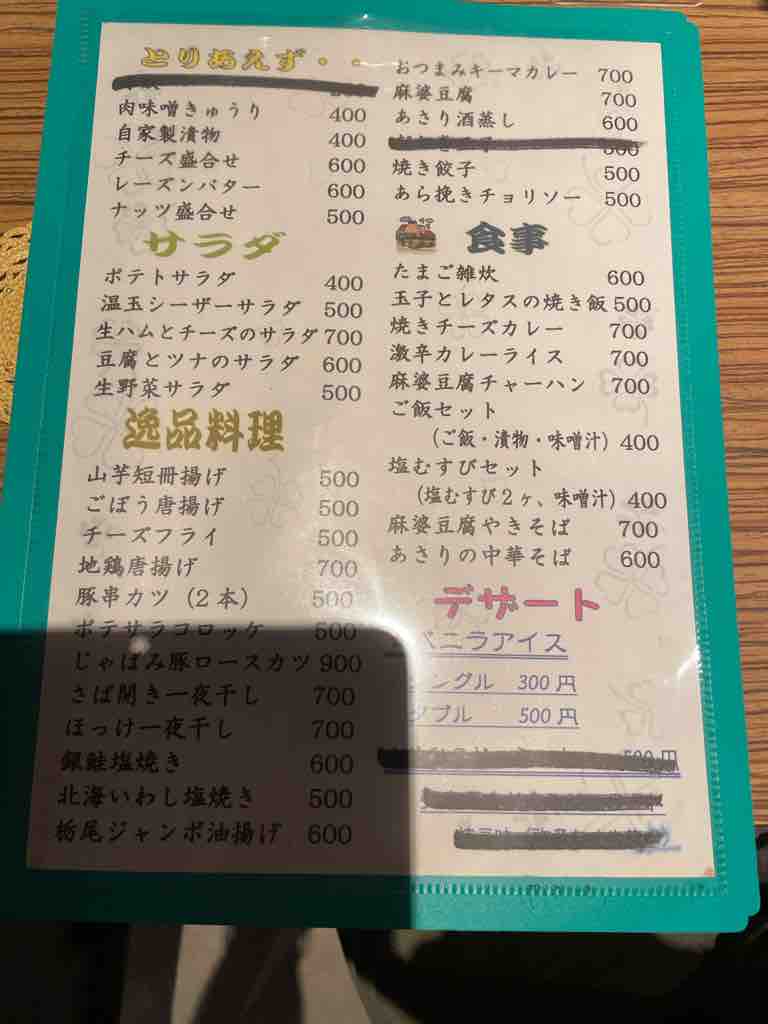 とりあえず・・
肉味噌きゅうり 400
自家製漬物 400
チーズ盛合せ 600
レーズンバター 600
ナッツ盛合せ 500
サラダ
ポテトサラダ 400
温玉シーザーサラダ 500
生ハムとチーズのサラダ 700
豆腐とツナのサラダ 600
生野菜サラダ 500
逸品料理
山芋短冊揚げ 500
ごぼう唐揚げ 500
チーズフライ 500
地鶏唐揚げ 700
豚串カツ（2本） 500
ポテサラコロッケ 500
じゃばみ豚ロースカツ 900
さば開き一夜干し 700
ほっけ一夜干し 700
銀鮭塩焼き 600
北海いわし塩焼き 500
栃尾ジャンボ油揚げ 600
おつまみキーマカレー 700
麻婆豆腐 700
あさり酒蒸し 600
500
焼き餃子 500
あら挽きチョリソー 500
食事
たまご雑炊 600
玉子とレタスの焼き飯 500
焼きチーズカレー 700
激辛カレーライス 700
麻婆豆腐チャーハン 700
ご飯セット
（ご飯・漬物・味噌汁） 400
塩むすびセット
（塩むすび２ヶ、味噌汁） 400
麻婆豆腐やきそば 700
あさりの中華そば 600
デザート
バニラアイス
シングル 300円
ダブル 500円
500円